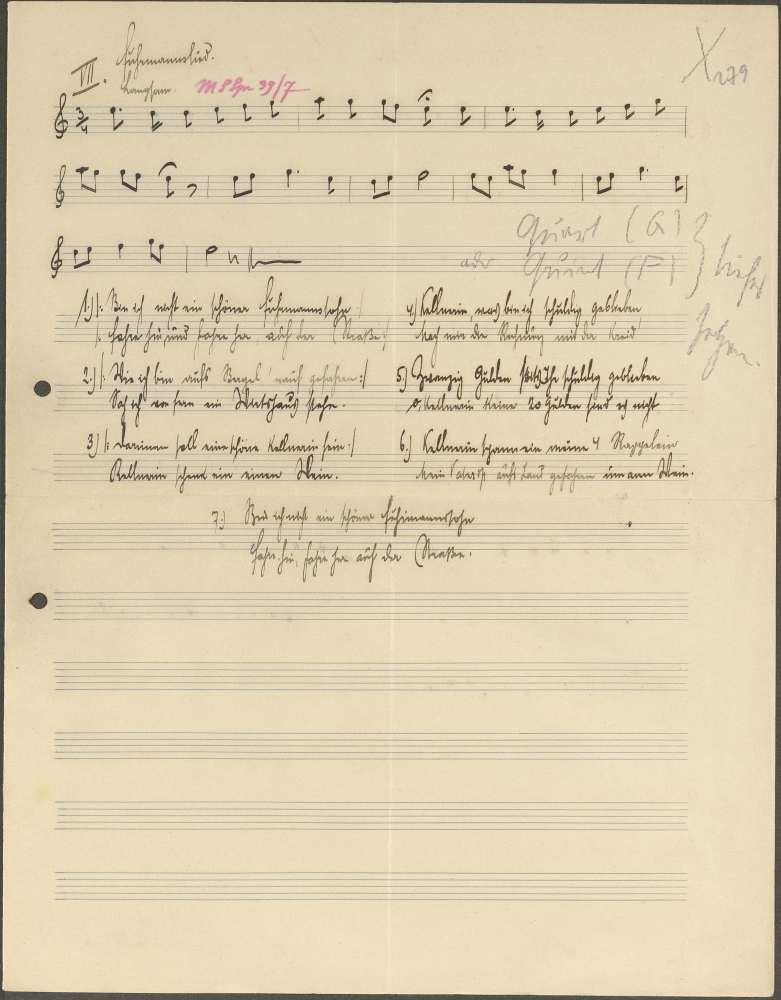 VII. Fuhrmannslied.
X 279
Langsam. 39/7
3/4
Quart (G)
oder Quint (F) } tiefer
setzen.
1.) /: Bin ich nicht ein schöner Fuhrmannssohn :/
/: Fahre hin und fahre her, auf der Straße :/
2.) /: Wie ich bin aufs Bergel 'nauf gefahren :/
Sah ich von fern ein Wirtshaus stehn.
3.) /: Darinnen soll eine schöne Kellnerin sein :/
Kellnerin schenk ein einen Wein.
4.) Kellnerin, was bin ich schuldig geblieben
Mach mir die Rechnung mit der Kreid
5.) Zwanzig Gulden seid Ihr schuldig geblieben
O, Kellnerin keine 20 Gulden sind es nicht
6.) Kellnerin spann ein meine 4 Rappelein
Mein Vater ist aufs Land gefahren um ann Wein.
7.) Bin ich nicht ein schöner Fuhrmannssohn
Fahre hin, fahre her auf der Straße.